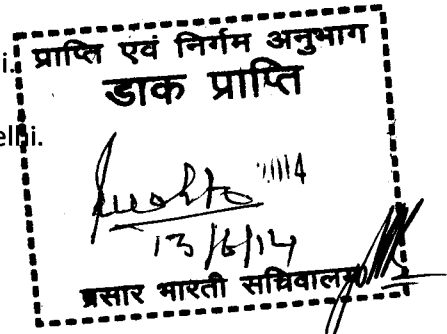 i.
प्राप्ति एवं निर्गम अनुभाग
डाक प्राप्ति
elhi.
2014
13/6/14
प्रसार भारती सचिवालय